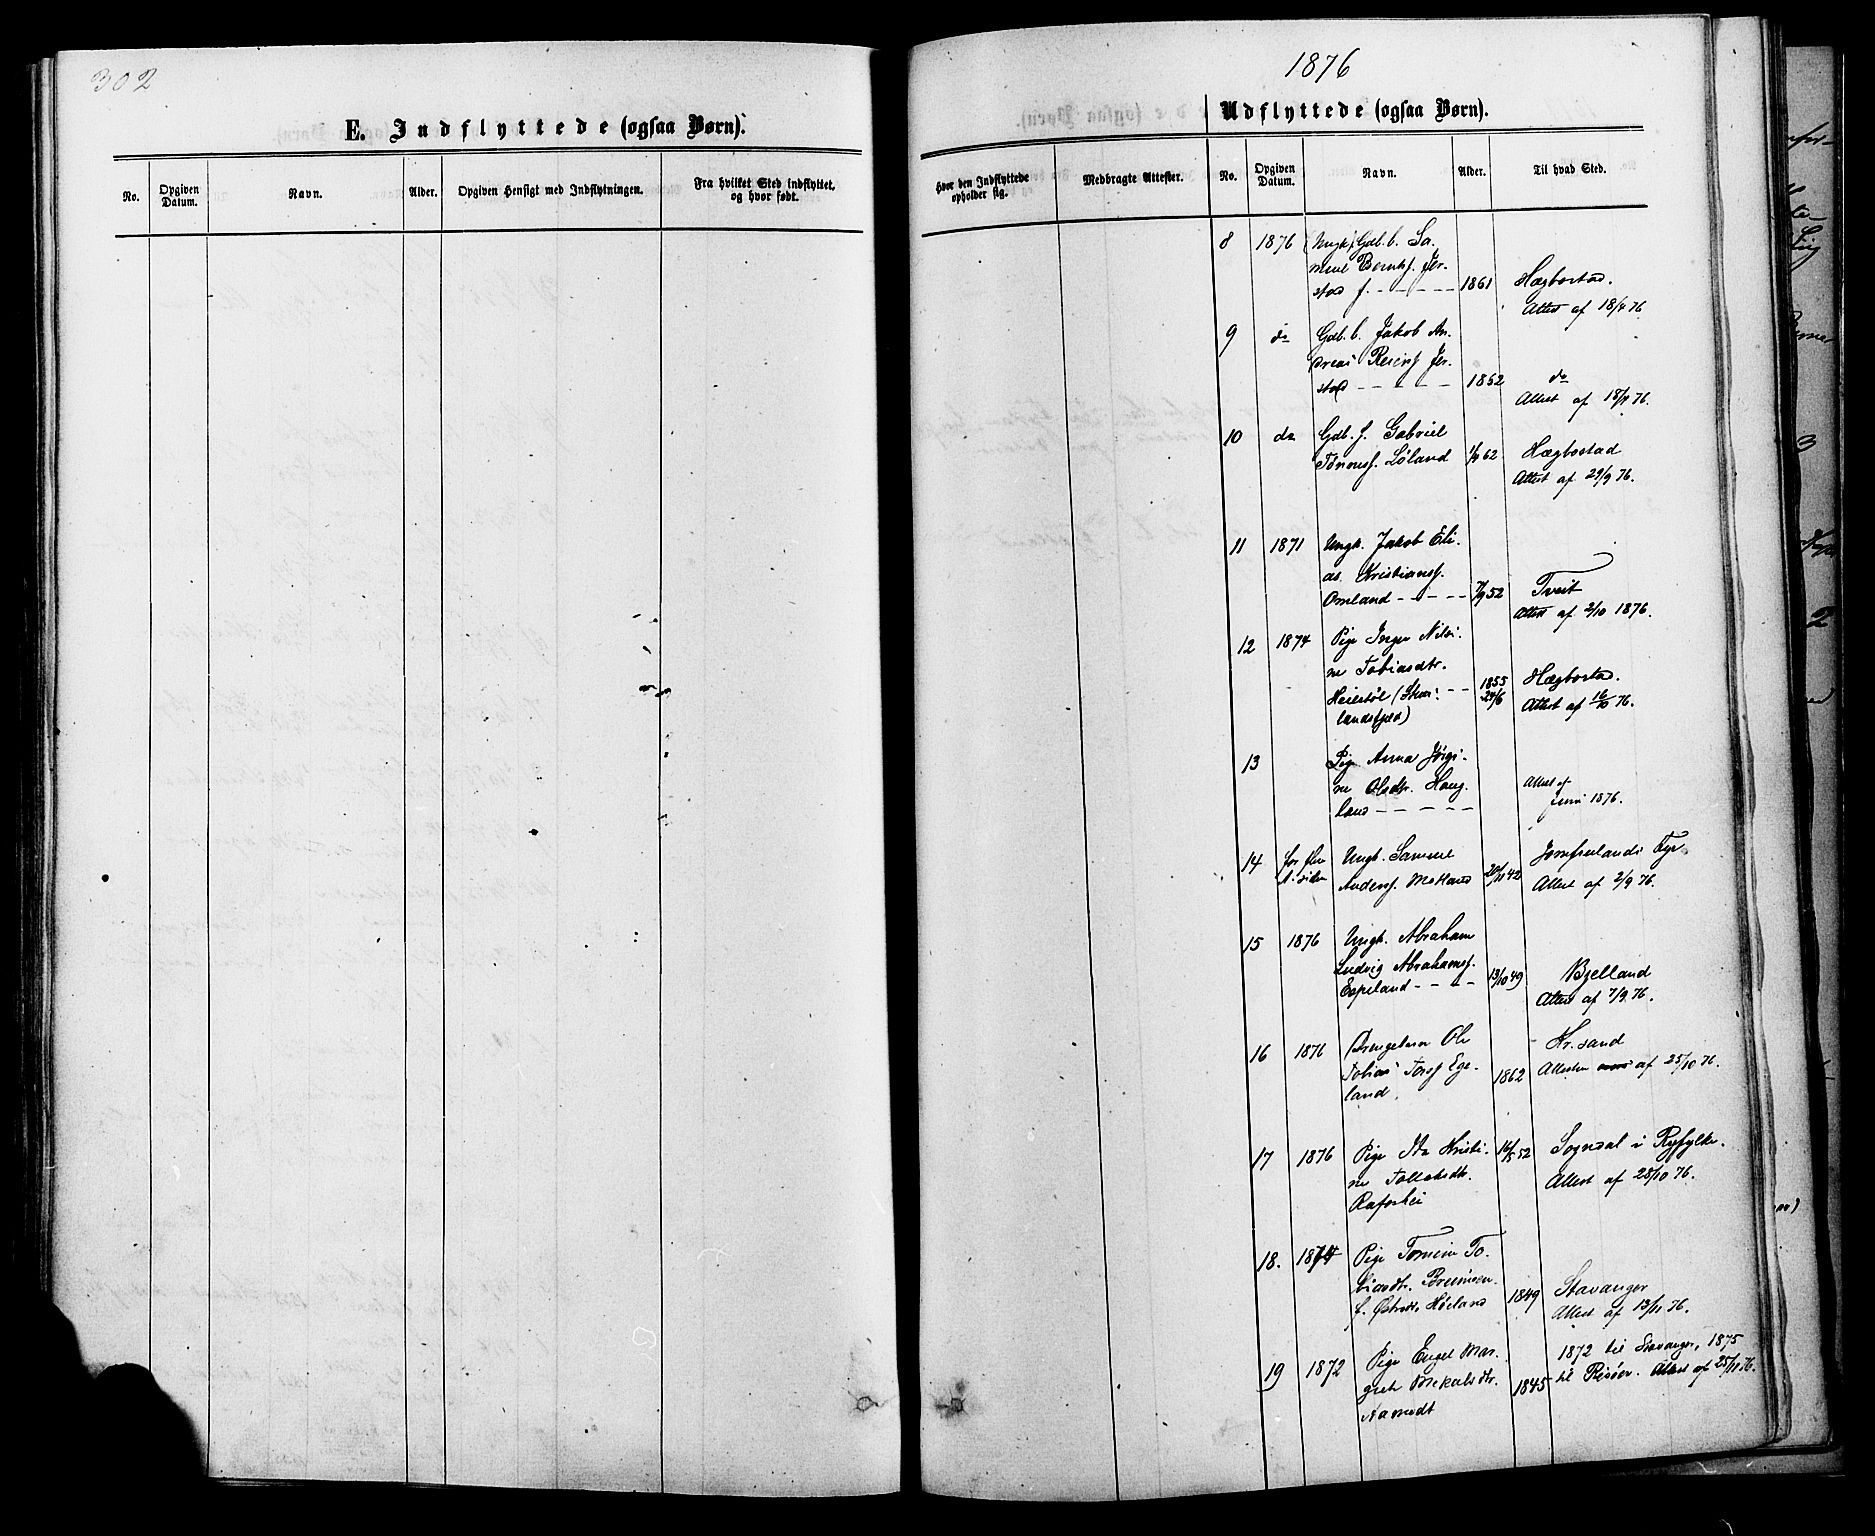 302
E. Indflyttede (ogsaa Børn).
No.
Opgiven Datum.
Navn.
Alder.
Opgiven Hensigt med Indflytningen.
Fra hvilket Sted indflyttet, og hvor født.
1876
Udflyttede (ogsaa Børn).
Hvor den Indflyttede opholder sig.
Medbragte Attester.
No.
Opgiven Datum.
Navn.
Alder.
Til hvad Sted.
8 1876 Ungk. Gdb. b. Sa-
muel Berntsf. Jer-
stad f. - - - - - 1861 Hægbostad.
Attest af 18/4 76
9 do Gdb. b. Jakob An-
dreas Reiersf. Jer-
stad - - - - - 1852 do
Attest af 18/11 76.
10 do Gdb. f. Gabriel
Tønnesf. Løland 62 Hægbostad
Attest af 29/9 76.
11 1871 Ungk. Jakob Eli-
as Kristiansf.
Omland - - - - 52 Tveit
Attest af 2/10 1876.
12 1874 Pige Inger Nilsi-
ne Tobiasdtr.
Heiestøl - - 1855 24/6 Hægbostad.
Attest af 16/10 76.
landsfjed)
13 Pige Anna Jørgi-
ne Olsdtr. Haug-
land - - - - - Attest af
Juni 1876.
14 for flere A. siden Ungk. Samuel
Andersf. Mølland 20/11 42 Jomfrulands Fyr
Attest af 2/9 76.
15 1876 Ungk. Abraham
Ludvig Abrahamsf.
Espeland - - - - 13/10 49 Bjelland
Attest af 7/9 76.
16 1876 Drengebarn Ole
Tobias Torsf Ege-
land. 1862 Kr.sand
Attesten af 25/10 76.
17 1876 Pige Kristi-
ne Tollaksdtr.
Rafoshei 16/5 52 Sogndal i Ryfylke.
Attest af 28/10 76.
18. 1874 Pige Tomine To-
biasdtr.
Høiland 1849 Stavanger
Attest af 13/11 76.
19 1872 Pige Engel Mar-
grete Mikalsdtr.
Aamodt 1845 1872 til Stavanger, 1875
til Risøer. Attest af 25/11 76.